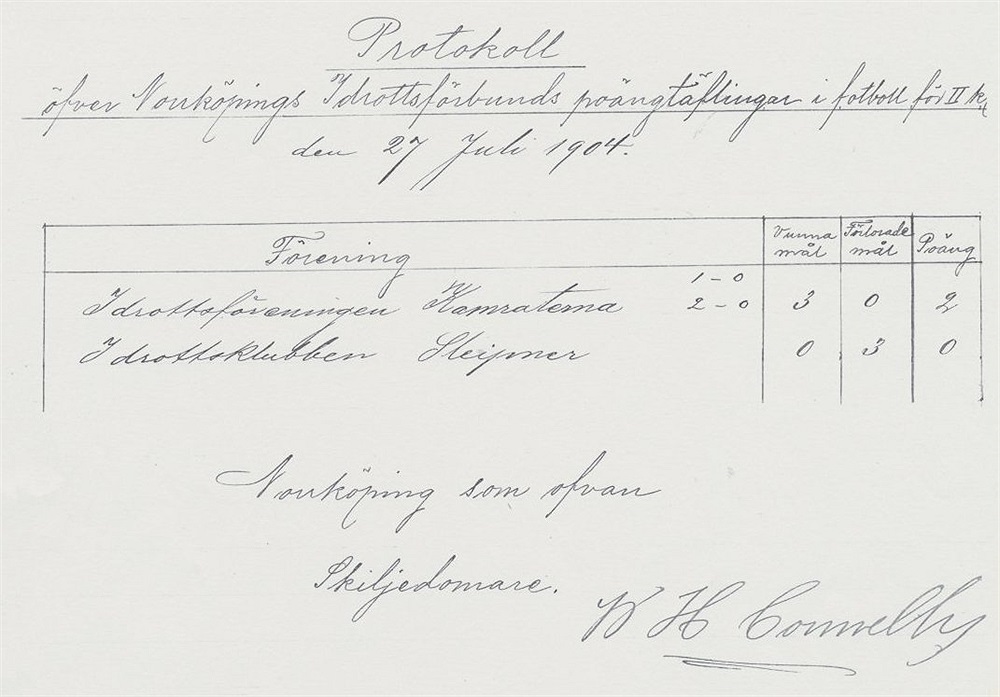 Protokoll
öfver Norrköpings Idrottsförbunds poängtäflingar i fotboll för II kl
den 27 Juli 1904.
Förening Vunna mål Förlorade mål Poäng
1-0
Idrottsföreningen Kamraterna 2-0 3 0 2
Idrottsklubben Sleipner 0 3 0
Norrköping som ofvan
Skiljedomare.
W H Connelly